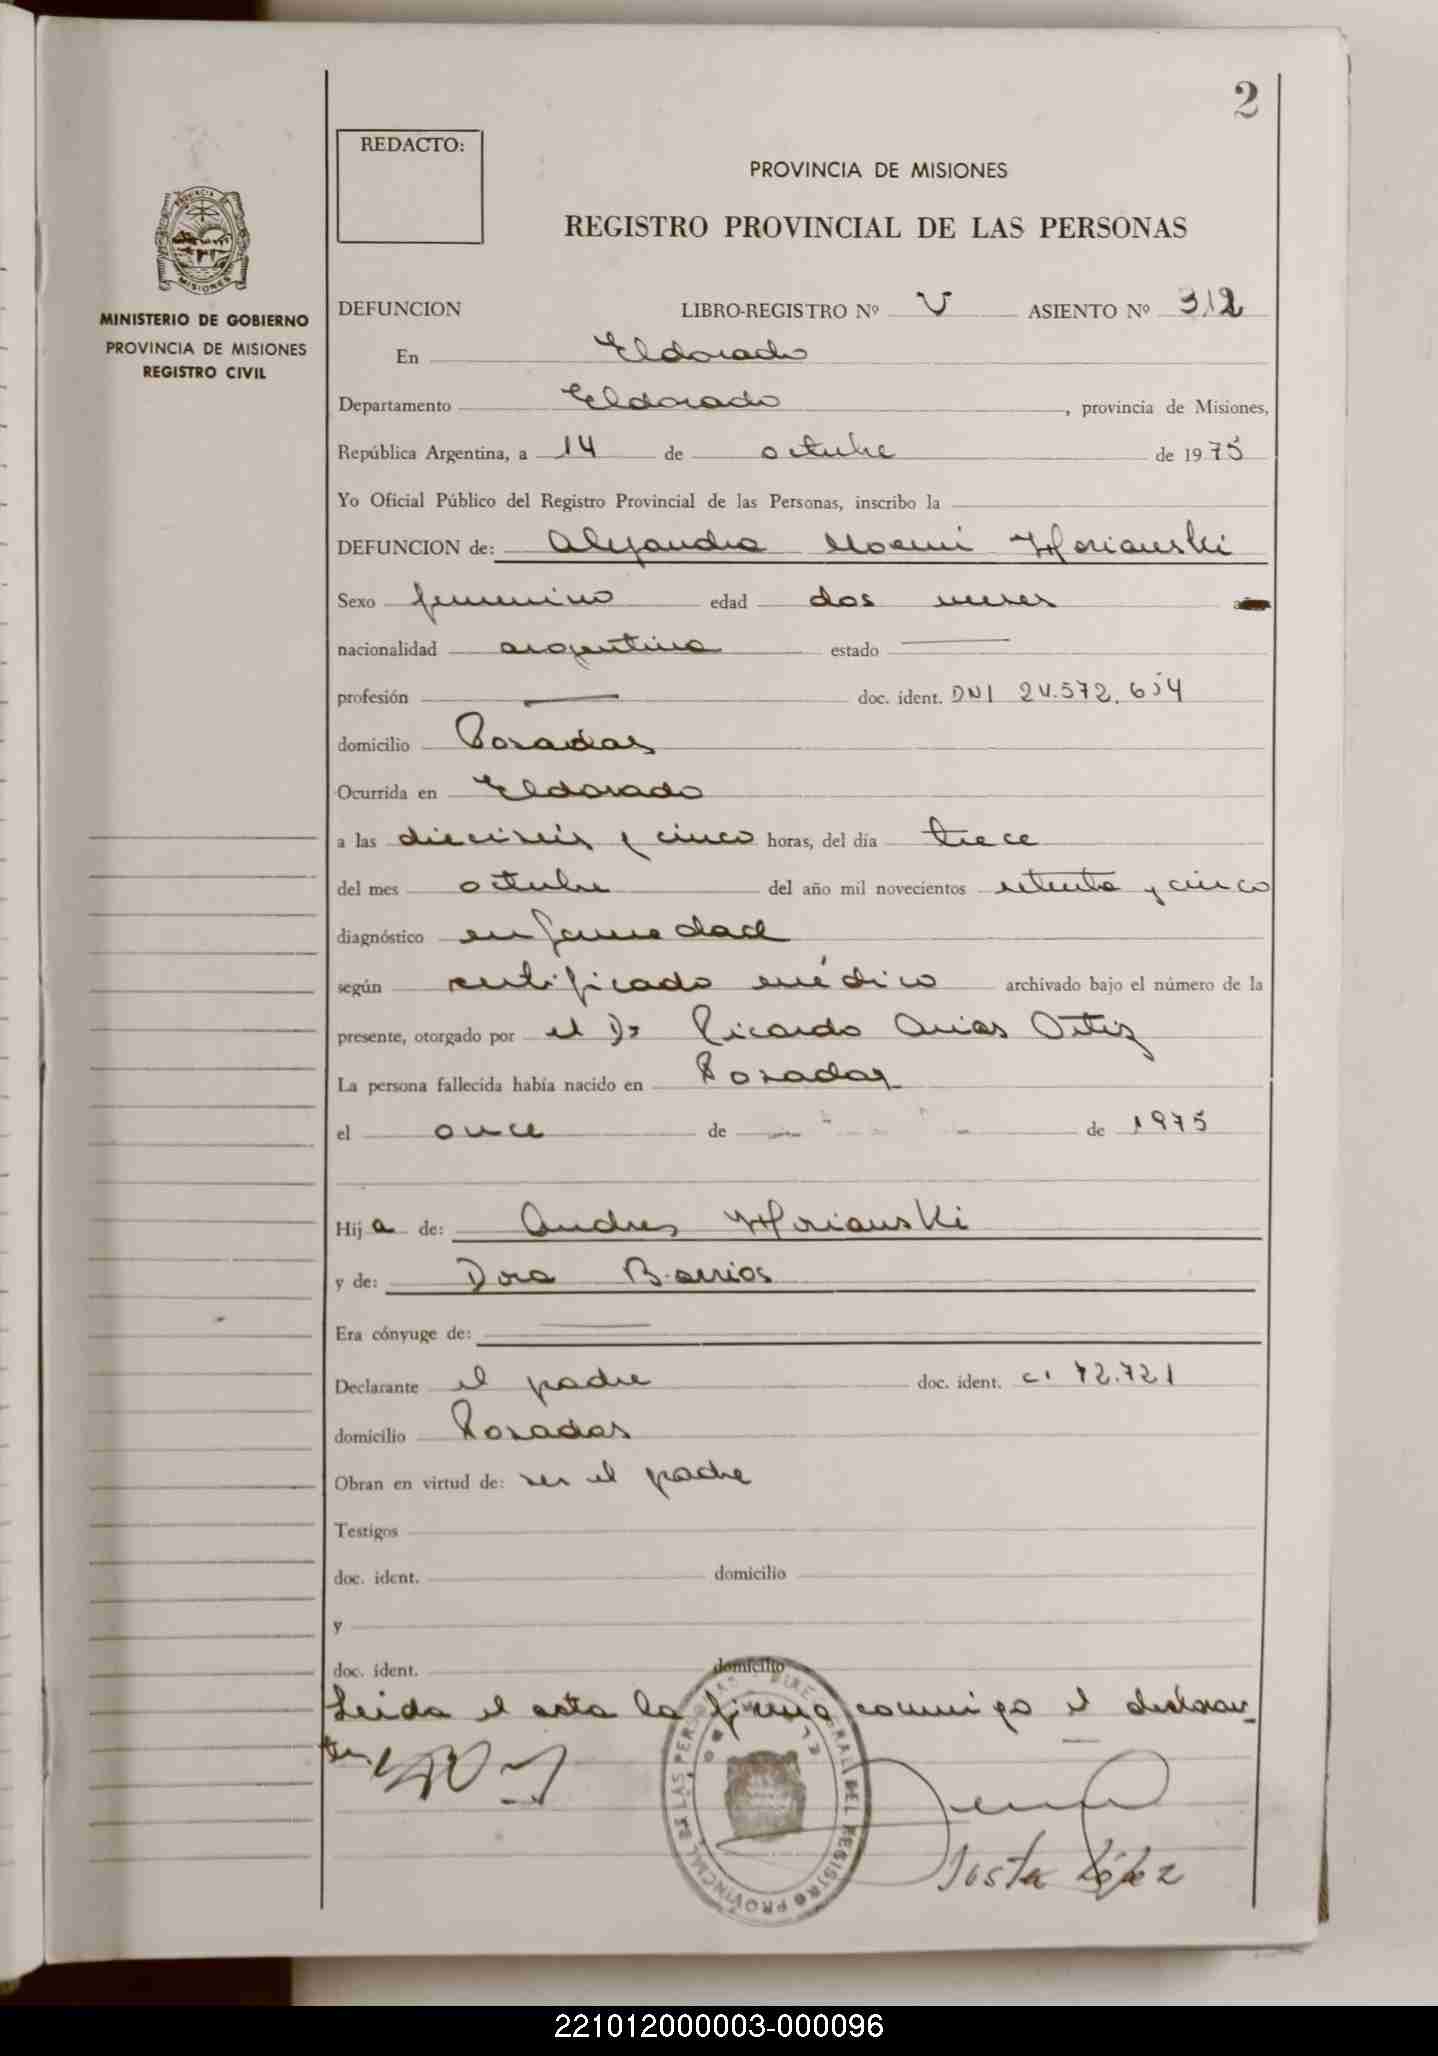 2
REDACTO:
PROVINCIA DE MISIONES
REGISTRO PROVINCIAL DE LAS PERSONAS
MINISTERIO DE GOBIERNO
PROVINCIA DE MISIONES
REGISTRO CIVIL
DEFUNCION LIBRO-REGISTRO Nº V ASIENTO Nº 312
En Eldorado
Departamento Eldorado, provincia de Misiones,
República Argentina, a 14 de octubre de 1975
Yo Oficial Público del Registro Provincial de las Personas, inscribo la
DEFUNCION de: Alejandra Noemi
Sexo femenino edad dos meses
nacionalidad argentina estado
profesión doc. ident. DNI
domicilio Posadas
Ocurrida en Eldorado
a las dieciseis y cinco horas, del día trece
del mes octubre del año mil novecientos setenta y cinco
diagnóstico enfermedad
según certificado médico archivado bajo el número de la
presente, otorgado por el Dr Ricardo Arias Ortiz
La persona fallecida había nacido en Posadas
el once de de 1975
Hija de: Andres
y de: Dora Barrios
Era cónyuge de:
Declarante el padre doc. ident. CI 72.721
domicilio Posadas
Obran en virtud de: ser el padre
Testigos
doc. ident. domicilio
y
doc. ident. domicilio
Leida el acta la firma conmigo el declaran-
te.
Justa López
221012000003-000096